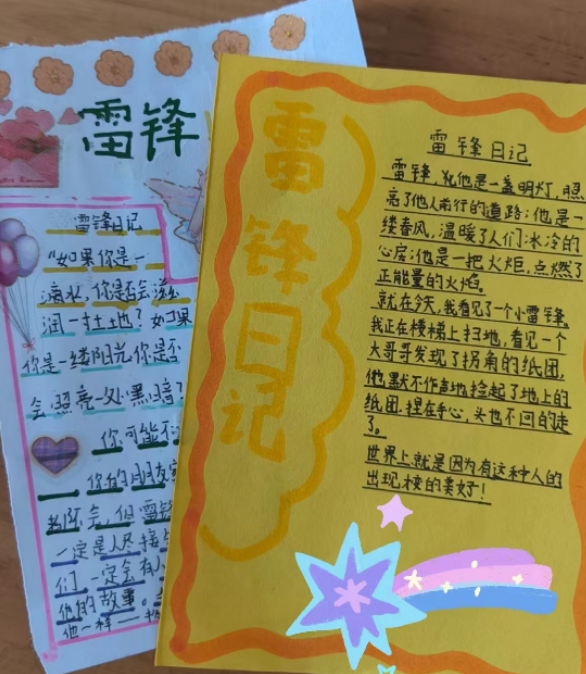 雷锋
雷锋日记
"如果你是一
滴水,你是否会滋
润一寸土地?如果
你是一缕阳光,你是否
会照亮一处黑暗?
你可能不
你的朋友家
一定是人尽接
们一定会有
他的故事。
他一样——
雷锋日记
雷锋日记
雷锋,他是一盏明灯,照
亮了他人前行的道路;他是一
缕春风,温暖了人们冰冷的
心房;他是一把火炬,点燃了
正能量的火焰。
就在今天,我看见了一个小雷锋。
我正在楼梯上扫地,看见一个
大哥哥发现了拐角的纸团,
他默不作声地捡起了地上的
纸团,捏在手心,头也不回的走
了。
世界上就是因为有这种人的
出现,才变的美好!